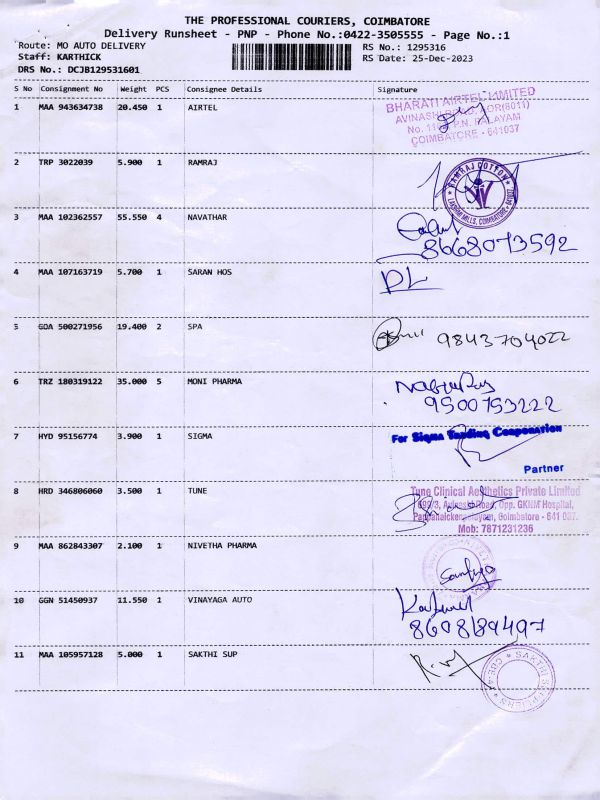 THE PROFESSIONAL COURIERS, COIMBATORE
Delivery Runsheet - PNP - Phone No.:0422-3505555 - Page No.:1
Route: MO AUTO DELIVERY RS No.: 1295316
Staff: KARTHICK RS Date: 25-Dec-2023
DRS No.: DCJB129531601
S No Consignment No Weight PCS Consignee Details Signature
1 MAA 943634738 20.450 1 AIRTEL
BHARATI AIRTEL LIMITED
AVINASHI
No. P.N. PALAYAM
COIMBATORE - 641037
2 TRP 3022039 5.900 1 RAMRAJ
RAMRAJ COTTON
LAKSHMI MILLS, COIMBATORE
3 MAA 102362557 55.550 4 NAVATHAR
8668073592
4 MAA 107163719 5.700 1 SARAN HOS
5 GOA 500271956 19.400 2 SPA
9843704022
6 TRZ 180319122 35.000 5 MONI PHARMA
9500753222
7 HYD 95156774 3.900 1 SIGMA
For Sigma Trading Corporation
Partner
8 HRD 346806060 3.500 1 TUNE
Tune Clinical Aesthetics Private Limited
Road, Opp. GKNM Hospital,
Pappanaickenpalayam, Coimbatore - 641 037.
Mob: 7871231236
9 MAA 862843307 2.100 1 NIVETHA PHARMA
10 GGN 51450937 11.550 1 VINAYAGA AUTO
8608189497
11 MAA 105957128 5.000 1 SAKTHI SUP
SAKTHI SUPPLIERS